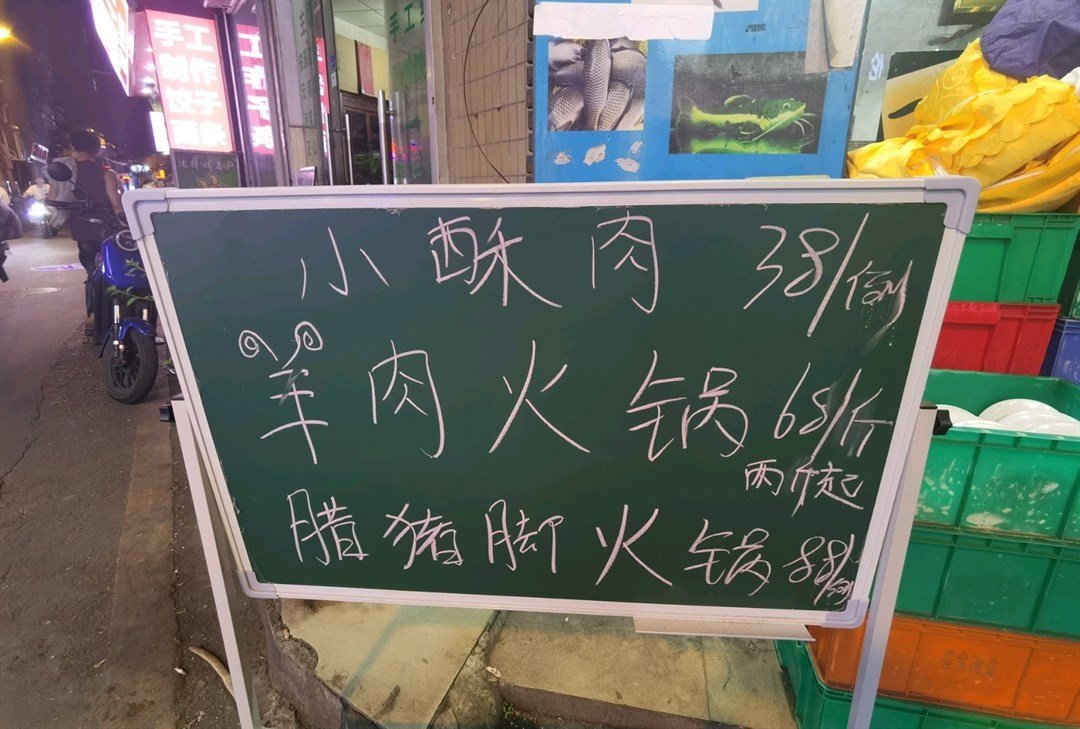 手工
制作
饺子
小酥肉 38/例
羊肉火锅 68/斤
两斤起
腊猪脚火锅 88/例